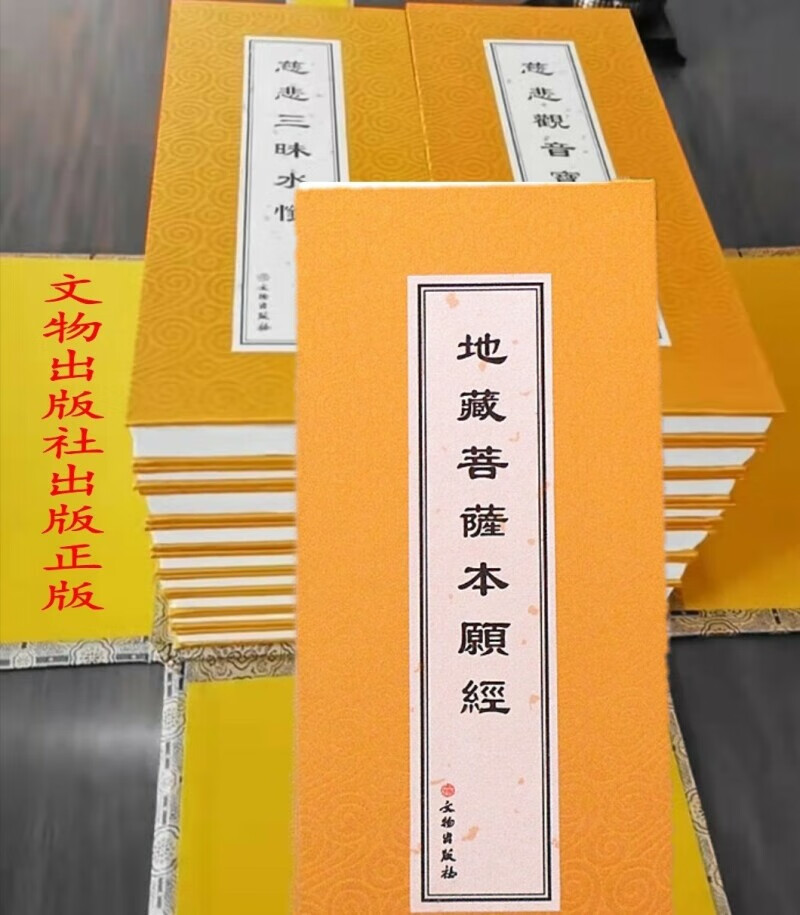 慈悲三昧水懺
文物出版社
慈悲觀音寶
文物出版社出版正版
地藏菩薩本願經
文物出版社